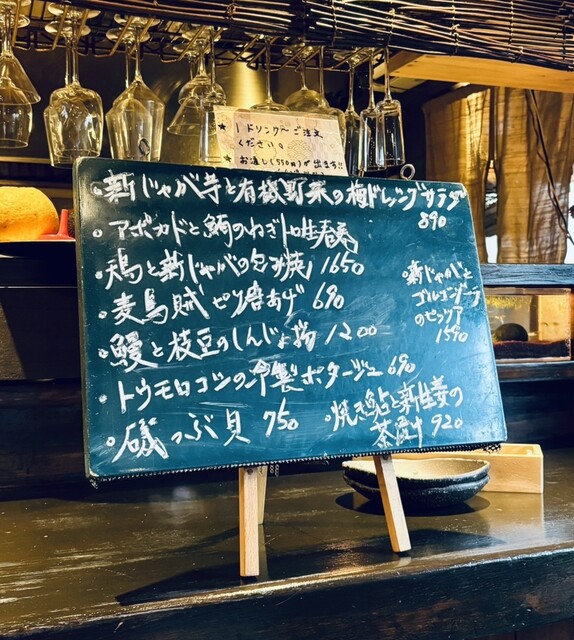 ★ 1ドリンク〜ご注文
ください。
★ お通し(550円)が出ます!!
・新じゃが芋と有機野菜の梅ドレッシングサラダ
890
・アボカドと鮪のねぎトロ生春巻
・鶏と新じゃがの包み焼 1650
・麦烏賊ピリ唐あげ 690
・鰻と枝豆のしんじょ揚 1200
・トウモロコシの冷製ポタージュ 690
・磯つぶ貝 750
・新じゃがと
ゴルゴンゾーラ
のピッツア
1590
・焼き鮎と新生姜の
茶漬け 920